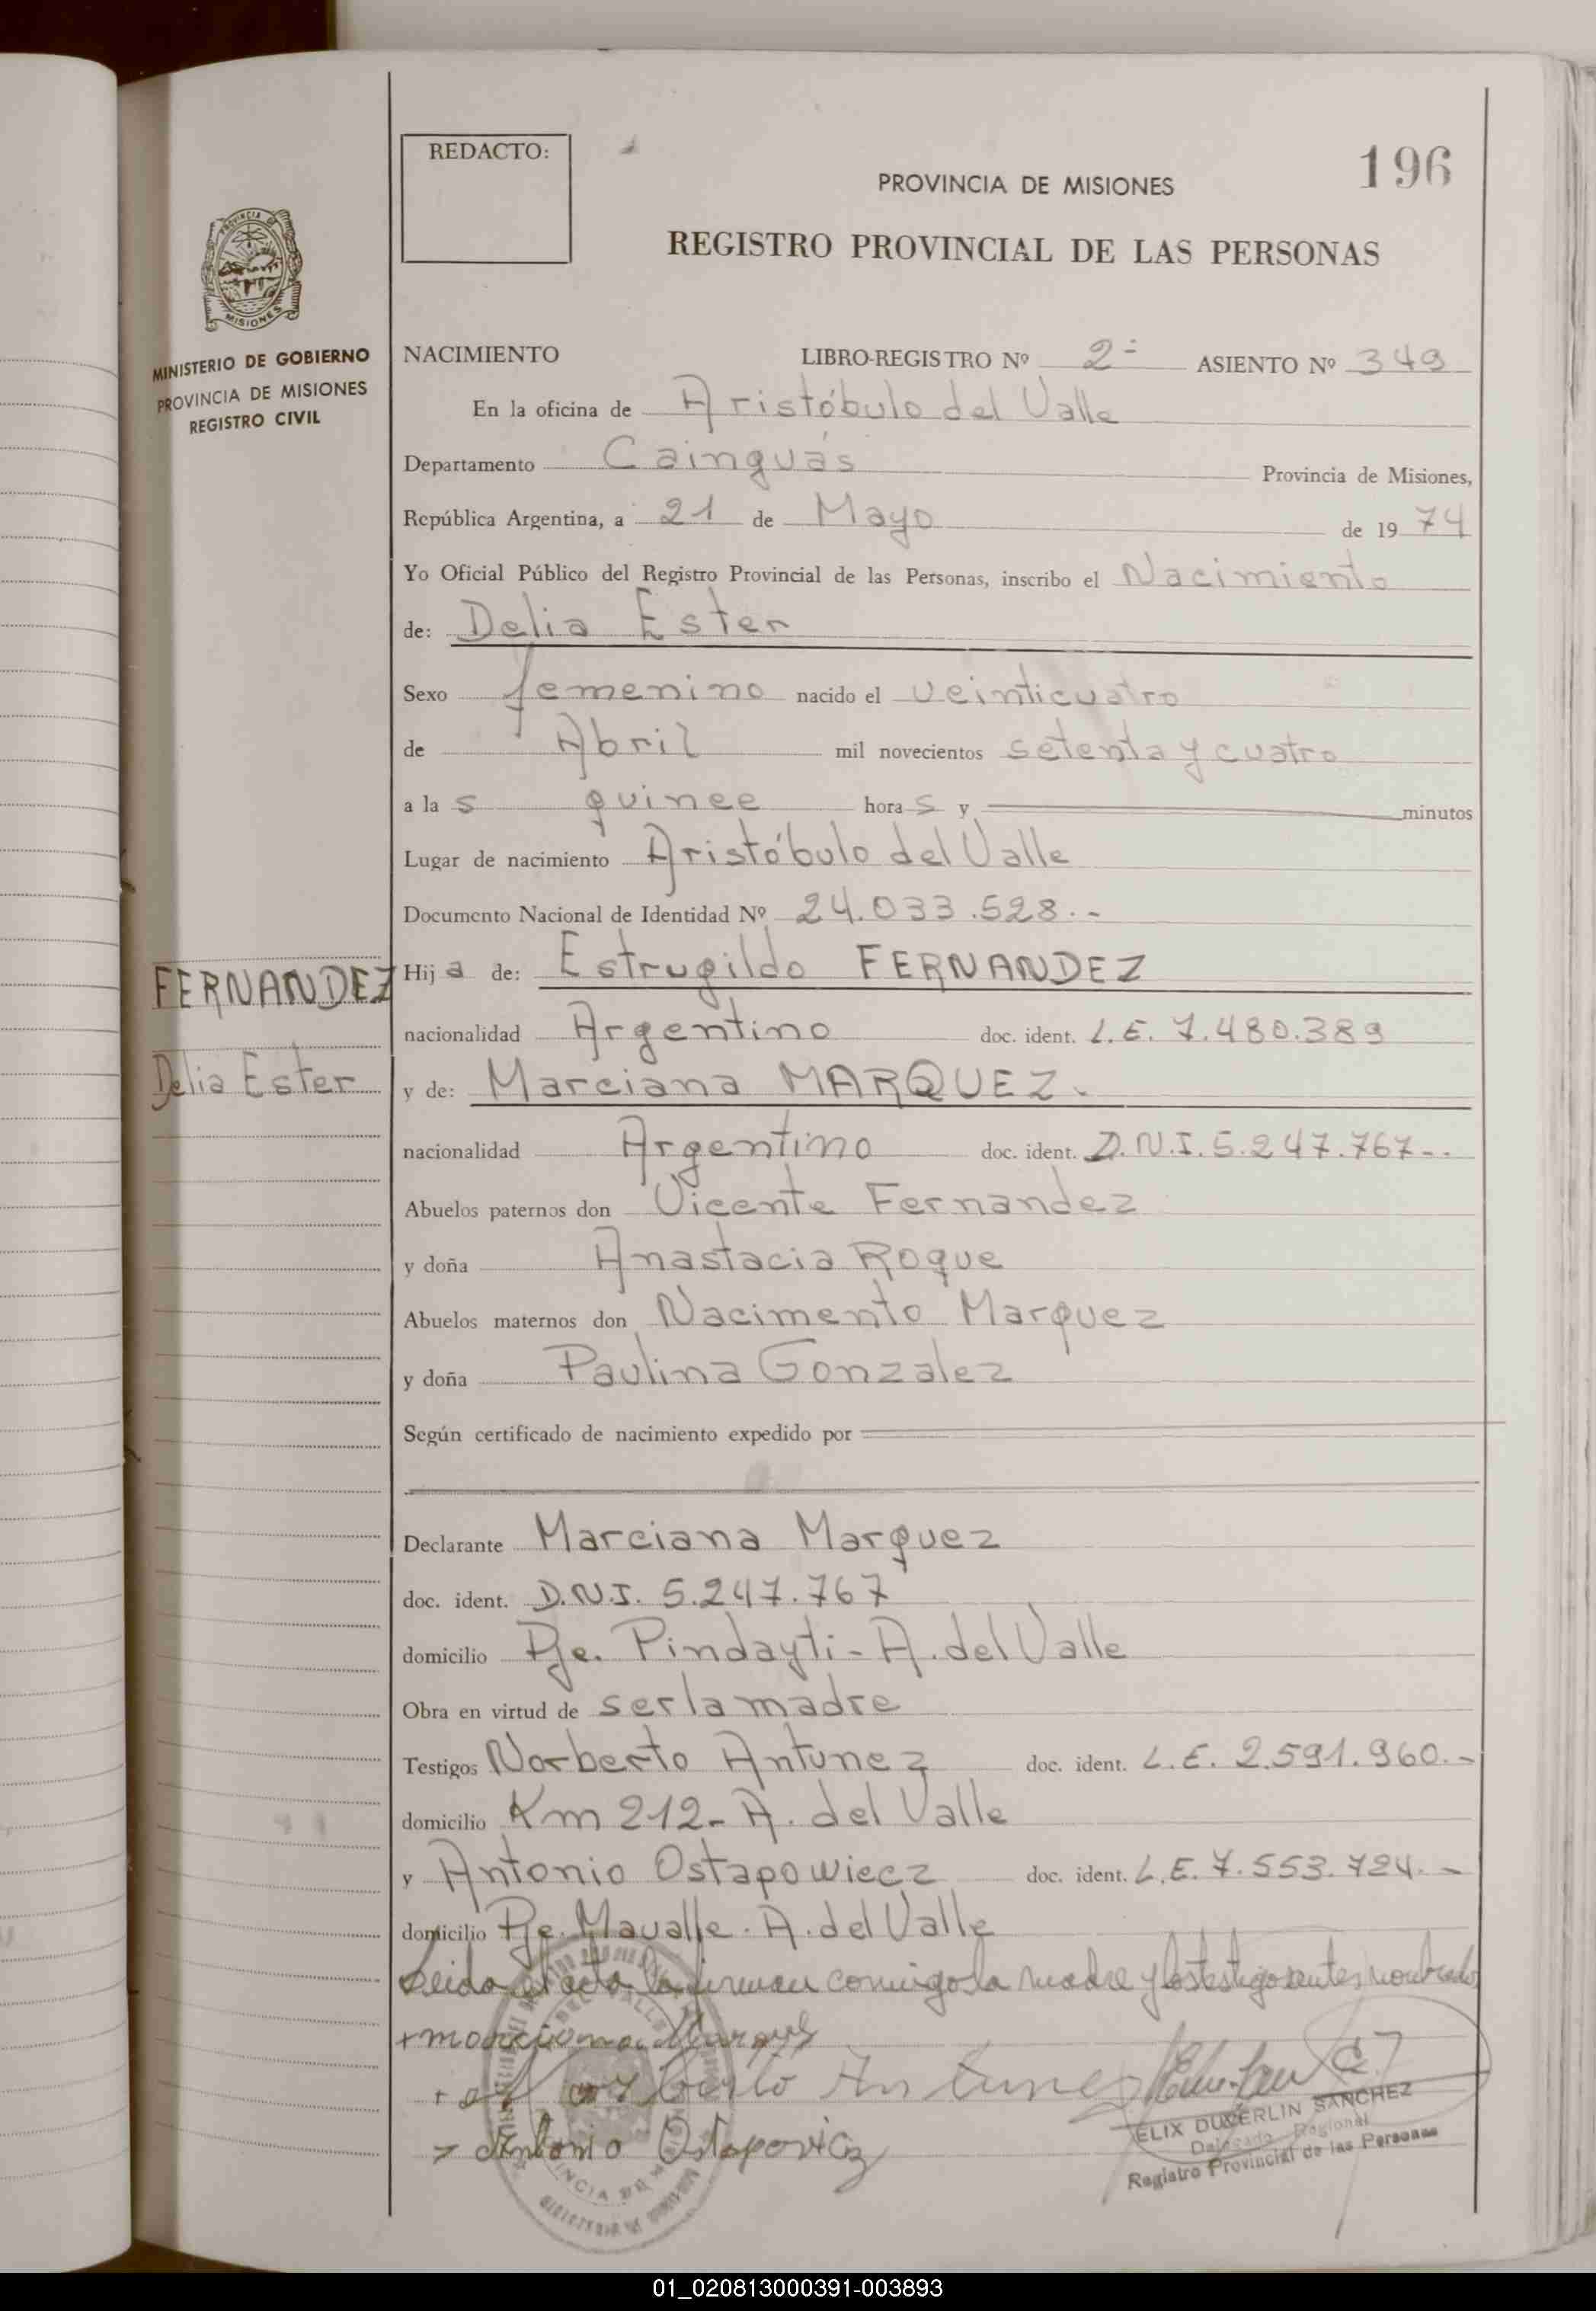 REDACTO:
196
PROVINCIA DE MISIONES
REGISTRO PROVINCIAL DE LAS PERSONAS
MISIONES
MINISTERIO DE GOBIERNO
PROVINCIA DE MISIONES
REGISTRO CIVIL
NACIMIENTO LIBRO-REGISTRO Nº 2- ASIENTO Nº 349
En la oficina de Aristóbulo del Valle
Departamento Cainguás Provincia de Misiones,
República Argentina, a 21 de Mayo de 1974
Yo Oficial Público del Registro Provincial de las Personas, inscribo el Nacimiento
de: Delia Ester
Sexo femenino nacido el veinticuatro
de Abril mil novecientos setenta y cuatro
a las quince horas y minutos
Lugar de nacimiento Aristóbulo del Valle
Documento Nacional de Identidad Nº 24.033.528.-
FERNANDEZ
Hija de: Estrugildo FERNANDEZ
nacionalidad Argentino doc. ident. L.E. 7.480.389
Delia Ester
y de: Marciana MARQUEZ.
nacionalidad Argentino doc. ident. D.N.I. 5.247.767--.
Abuelos paternos don Vicente Fernandez
y doña Anastacia Roque
Abuelos maternos don Nacimento Marquez
y doña Paulina Gonzalez
Según certificado de nacimiento expedido por
Declarante Marciana Marquez
doc. ident. D.N.I. 5.247.767
domicilio Pje. Pindayti - A. del Valle
Obra en virtud de ser la madre
Testigos Norberto Antunez doc. ident. L.E. 2.591.960.-
domicilio Km 212- A. del Valle
y Antonio Ostapowiecz doc. ident. L.E. 7.553.724.-
domicilio Pje. Mavalle. A. del Valle
Leida el acta la firman conmigo la madre y los testigos antes nombrados
+ marciana Marques
Antunez
Antonio Ostapovicz
ELIX DUVERLIN SANCHEZ
Delegado Regional
Registro Provincial de las Personas
01_020813000391-003893